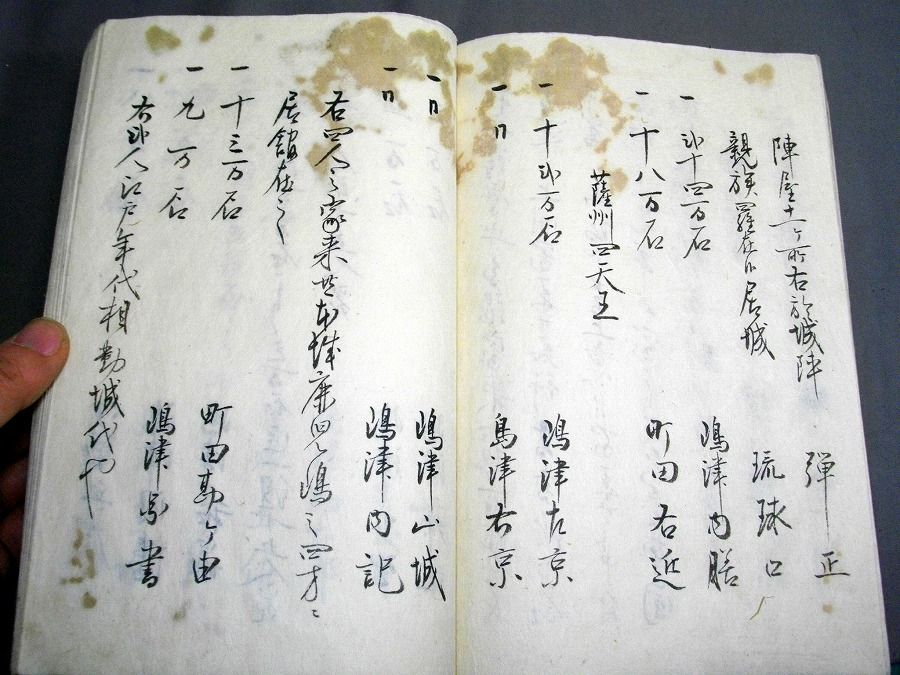 弾正
陣屋十一ヶ所右於城陣
琉球口
親族羅在居城
一 弐十四万石 嶋津内膳
一 十八万石 町田右近
薩州四天王
一 十弐万石 嶋津左京
一 同 島津右京
一 同 嶋津山城
一 同 嶋津内記
右四人之家来共本城鹿児嶋之四方ニ
居舘在之
一 十三万石 町田勘ヶ由
一 九万石 嶋津図書
右弐人江戸年代相勤城代也